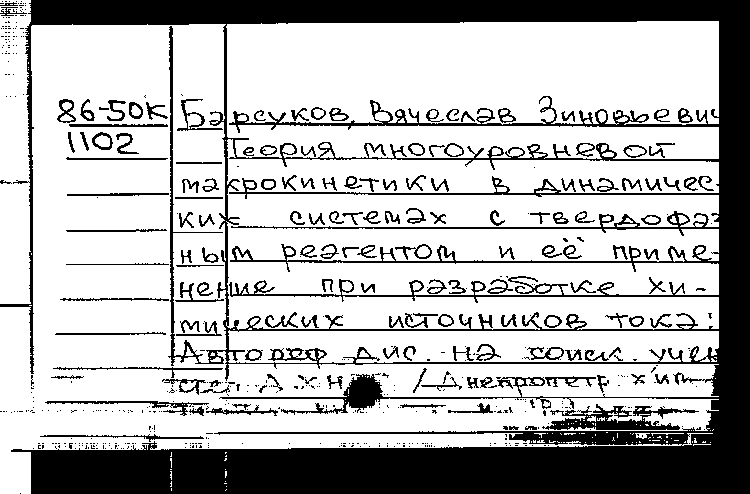 86-50К Барсуков, Вячеслав Зиновьевич
1102 Теория многоуровневой
макрокинетики в динамичес-
ких системах с твердофаз
ным реагентом и её приме-
нение при разработке хи-
мических источников тока:
Автореф дис. на соиск. учен
степ Д.Х.Н. /Днепропетр. хим-